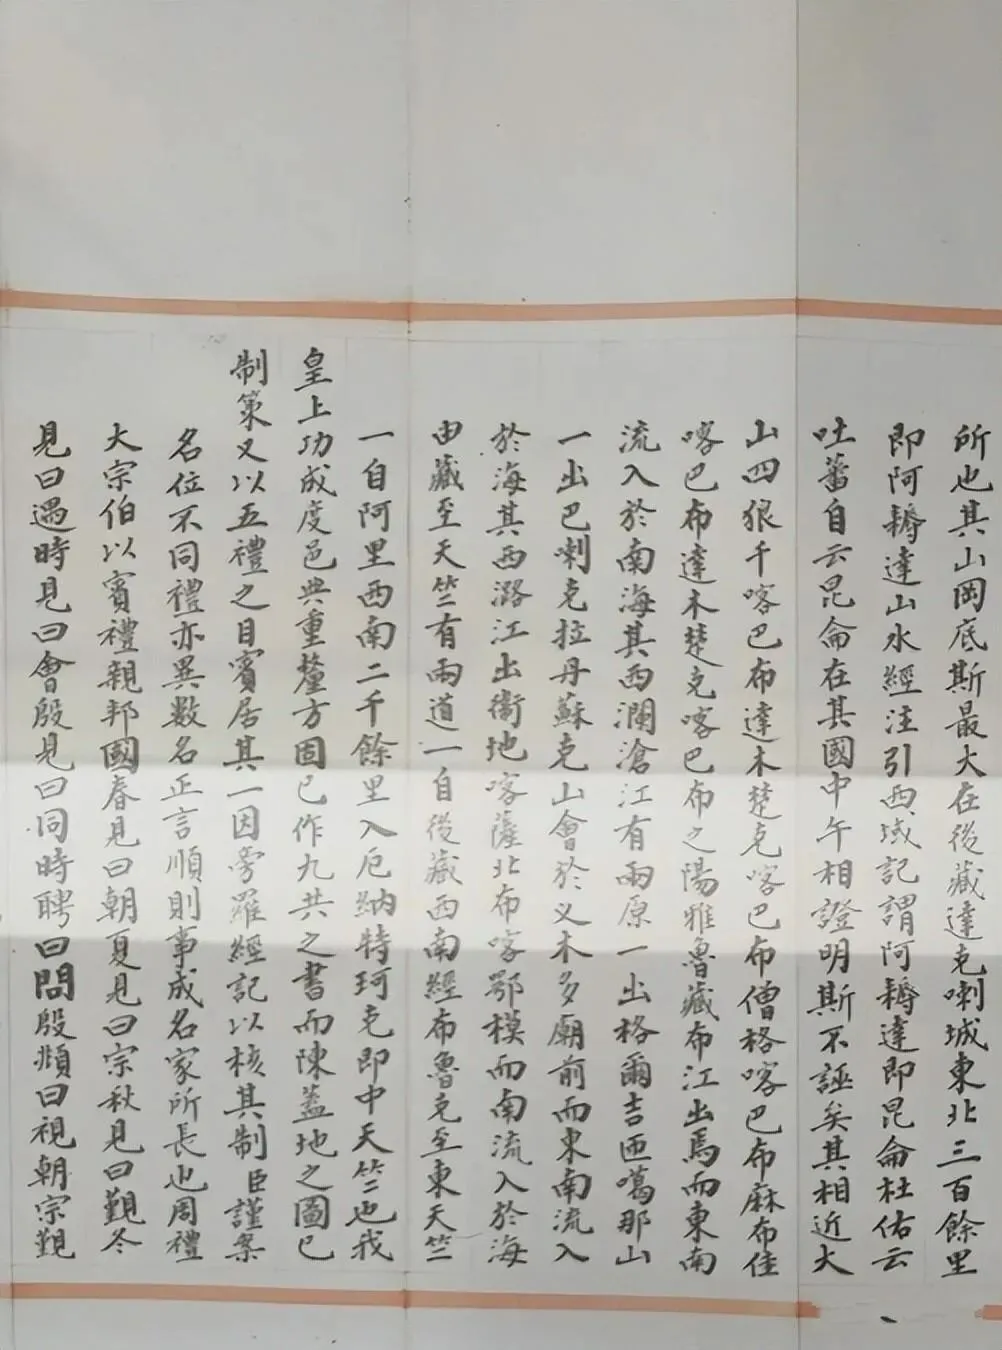 所也其山岡底斯最大在後藏達克喇城東北三百餘里
即阿耨達山水經注引西域記謂阿耨達即昆侖杜佑云
吐蕃自云昆侖在其國中午相證明斯不誣矣其相近大
山四狼千喀巴布達木楚克喀巴布僧格喀巴布麻布佳
喀巴布達木楚克喀巴布之陽雅魯藏布江出焉而東南
流入於南海其西瀾滄江有兩原一出格爾吉匝噶那山
一出巴喇克拉丹蘇克山會於义木多廟前而東南流入
於海其西潞江出衞地喀薩北布喀鄂模而南流入於海
由藏至天竺有兩道一自後藏西南經布魯克至東天竺
一自阿里西南二千餘里入厄納特珂克即中天竺也我
皇上功成度邑典重釐方固已作九共之書而陳蓋地之圖已
制策又以五禮之目賓居其一因旁羅經記以核其制臣謹案
名位不同禮亦異數名正言順則事成名家所長也周禮
大宗伯以賓禮親邦國春見曰朝夏見曰宗秋見曰觐冬
見曰遇時見曰會殷見曰同時聘曰問殷頫曰視朝宗觐